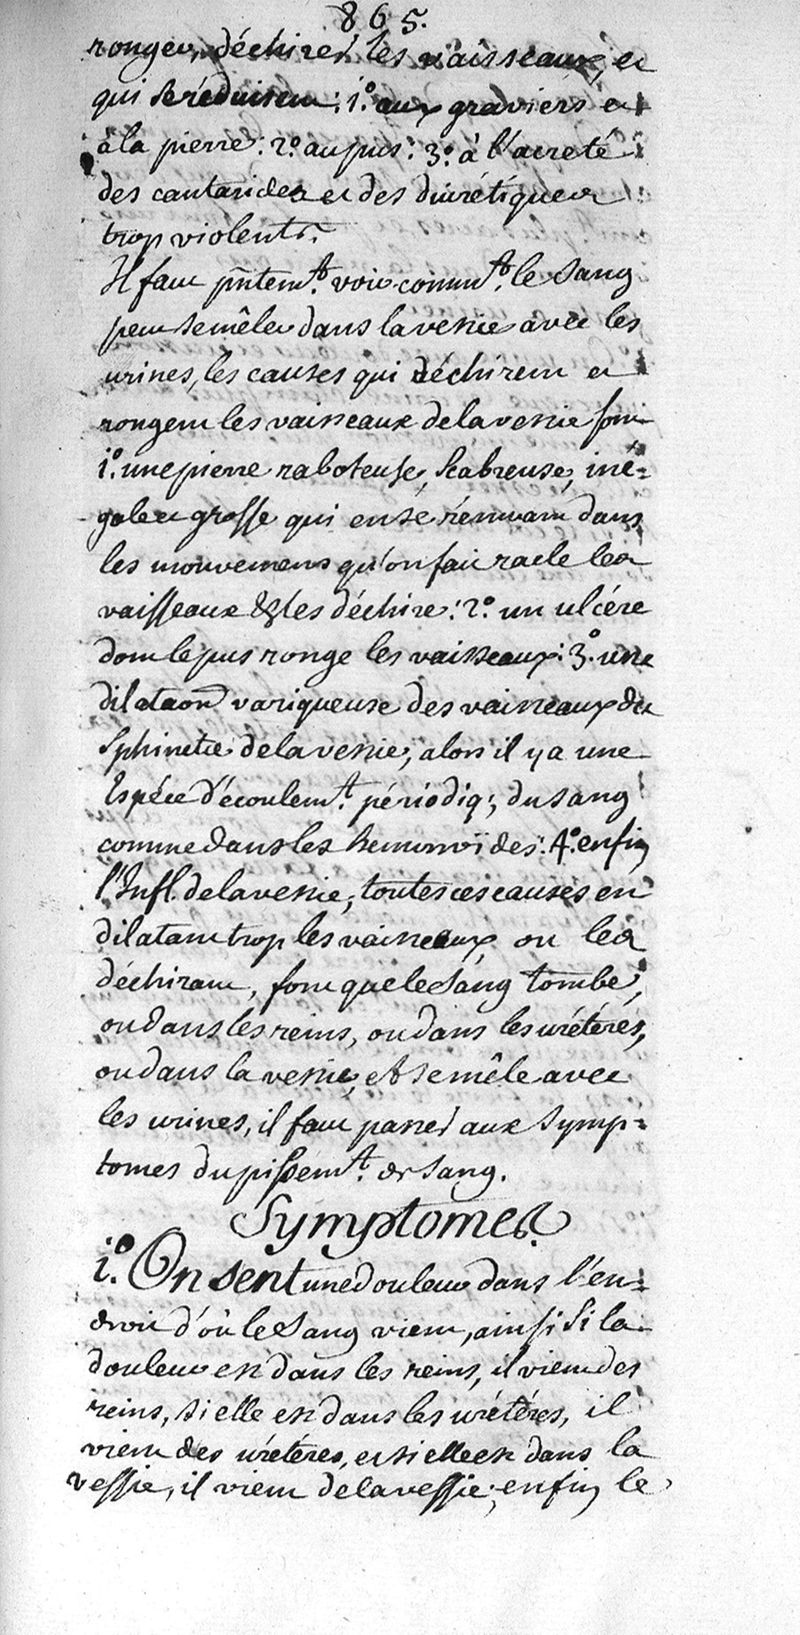 865.
ronger, déchirer les vaisseaux, et
qui se réduisent: 1.° aux graviers et
à la pierre: 2.° au pus: 3.° à l'acreté
des cantarides et des diurétiques
trop violents.
Il faut pñtem.t voir comm.t le sang
peut se mêler dans la vessie avec les
urines, les causes qui déchirent et
rongent les vaisseaux de la vessie sont
1.° une pierre raboteuse, scabreuse, iné=
gale et grosse qui en se rémuant dans
les mouvemens qu'on fait racle les
vaisseaux & les déchire: 2.° un ulcére
dont le pus ronge les vaisseaux: 3.° une
dilataon variqueuse des vaisseaux du
Sphincter de la vessie, alors il y a une
Espéce d'écoulem.t périodiq; du sang
comme dans les hemorroïdes: 4.° enfin
l'Infl. de la vessie, toutes ces causes en
dilatant trop les vaisseaux, ou les
déchirant, font que le sang tombe,
ou dans les reins, ou dans les urétéres,
ou dans la vessie, et se mêle avec
les urines, il faut passer aux symp=
tomes du pissem.t de sang.
Symptomes.
1.° On sent une douleur dans l'en=
droit d'où le sang vient, ainsi si la
douleur est dans les reins, il vient des
reins, si elle est dans les urétéres, il
vient des urétéres, et si elle est dans la
vessie, il vient de la vessie; enfin le